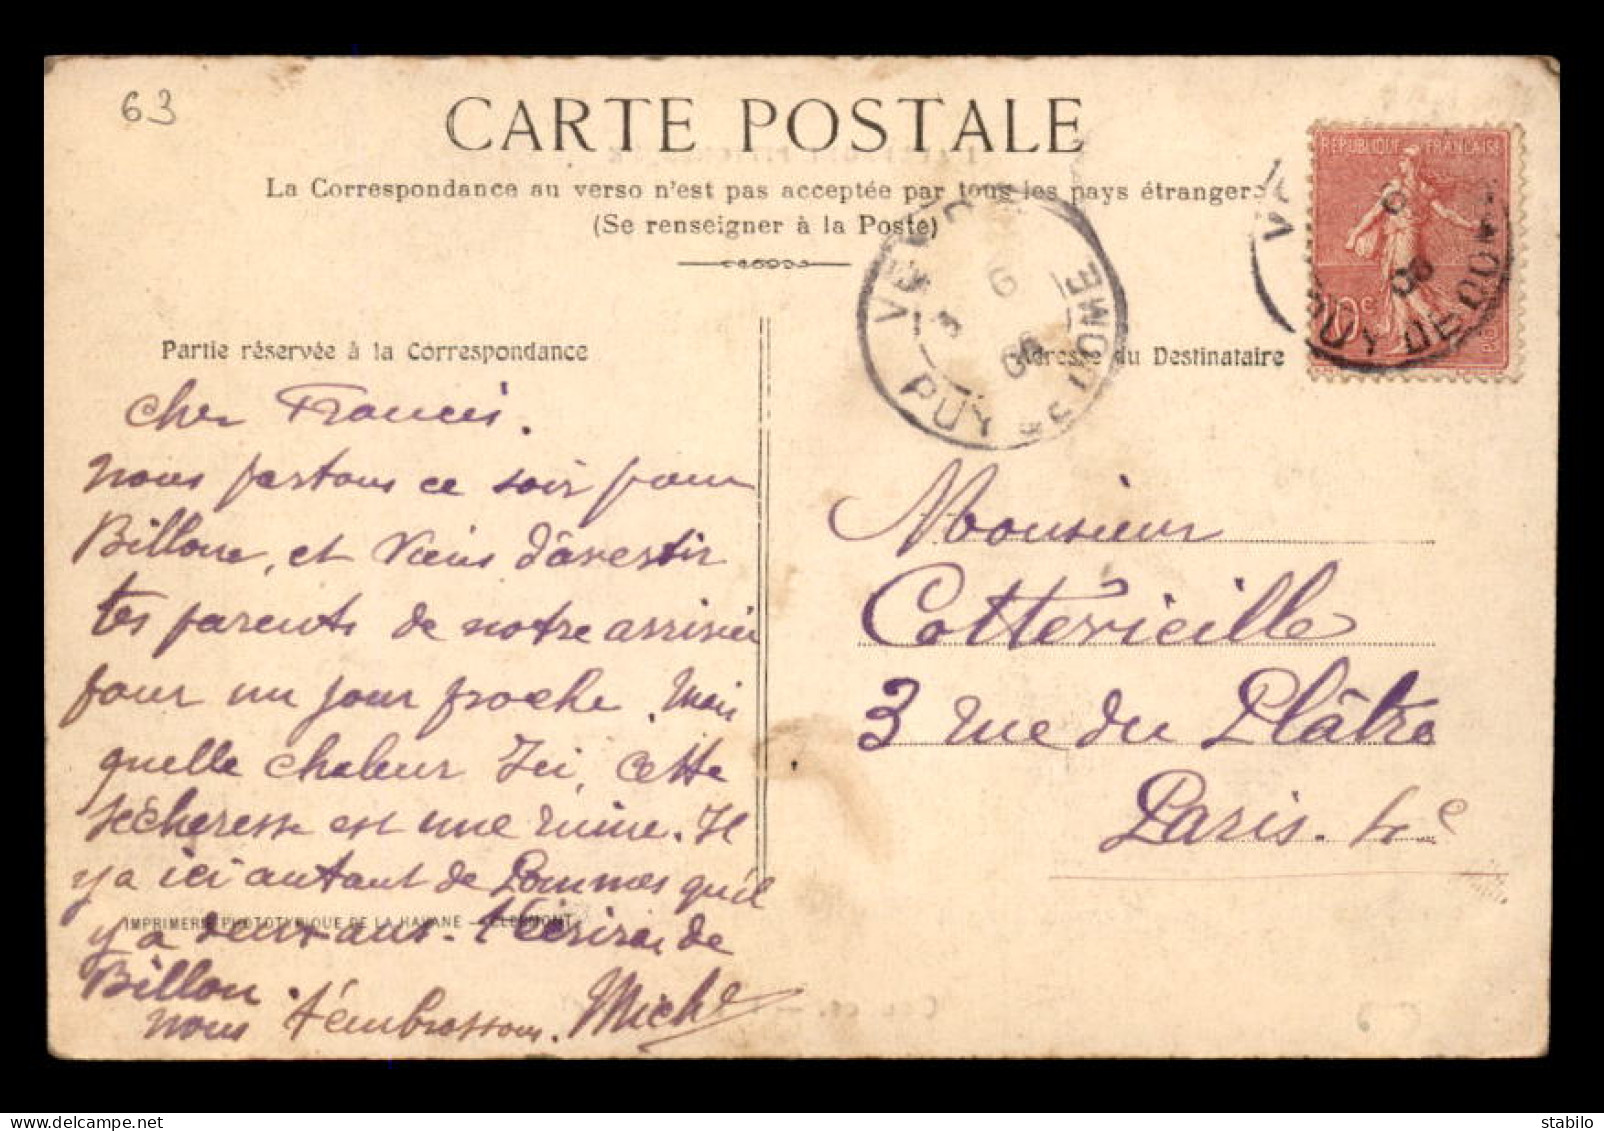 63
CARTE POSTALE
La Correspondance au verso n'est pas acceptée par tous les pays étrangers
(Se renseigner à la Poste)
RÉPUBLIQUE FRANÇAISE
10c
PUY DE DOME
6
06
PUY DE DOME
06
Partie réservée à la Correspondance
Adresse du Destinataire
Cher Francis.
nous partons ce soir pour
Billom, et viens d'avertir
tes parents de notre arrivée
pour un jour proche. Mais
quelle chaleur Ici, cette
sécheresse est une ruine. Il
y a ici autant de Pommes qu'il
y a deux ans. T'écrirai de
Billom.
nous t'embrassons. Michel
IMPRIMERIE PHOTOTYPIQUE DE LA HAVANE – CLERMONT
Monsieur
Cottevieille
3 rue du Plâtre
Paris. 4e
delcampe.net
stabilo